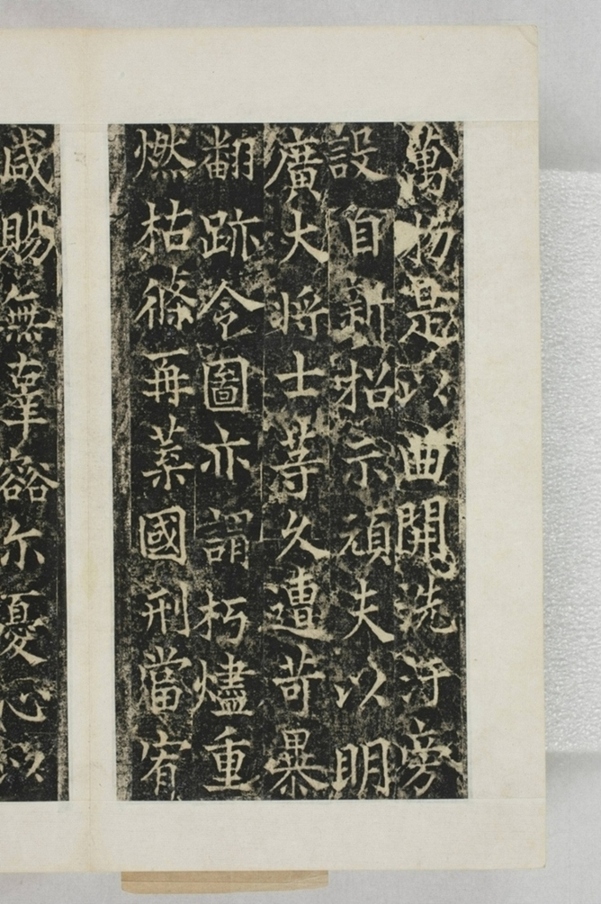 萬物是以曲開洗汙旁
設自新招示頑夫以明
廣大將士等久遭苛暴
翻跡令圖亦謂朽燼重
燃枯條再葉國刑當宥
咸賜無辜豁尔憂心以